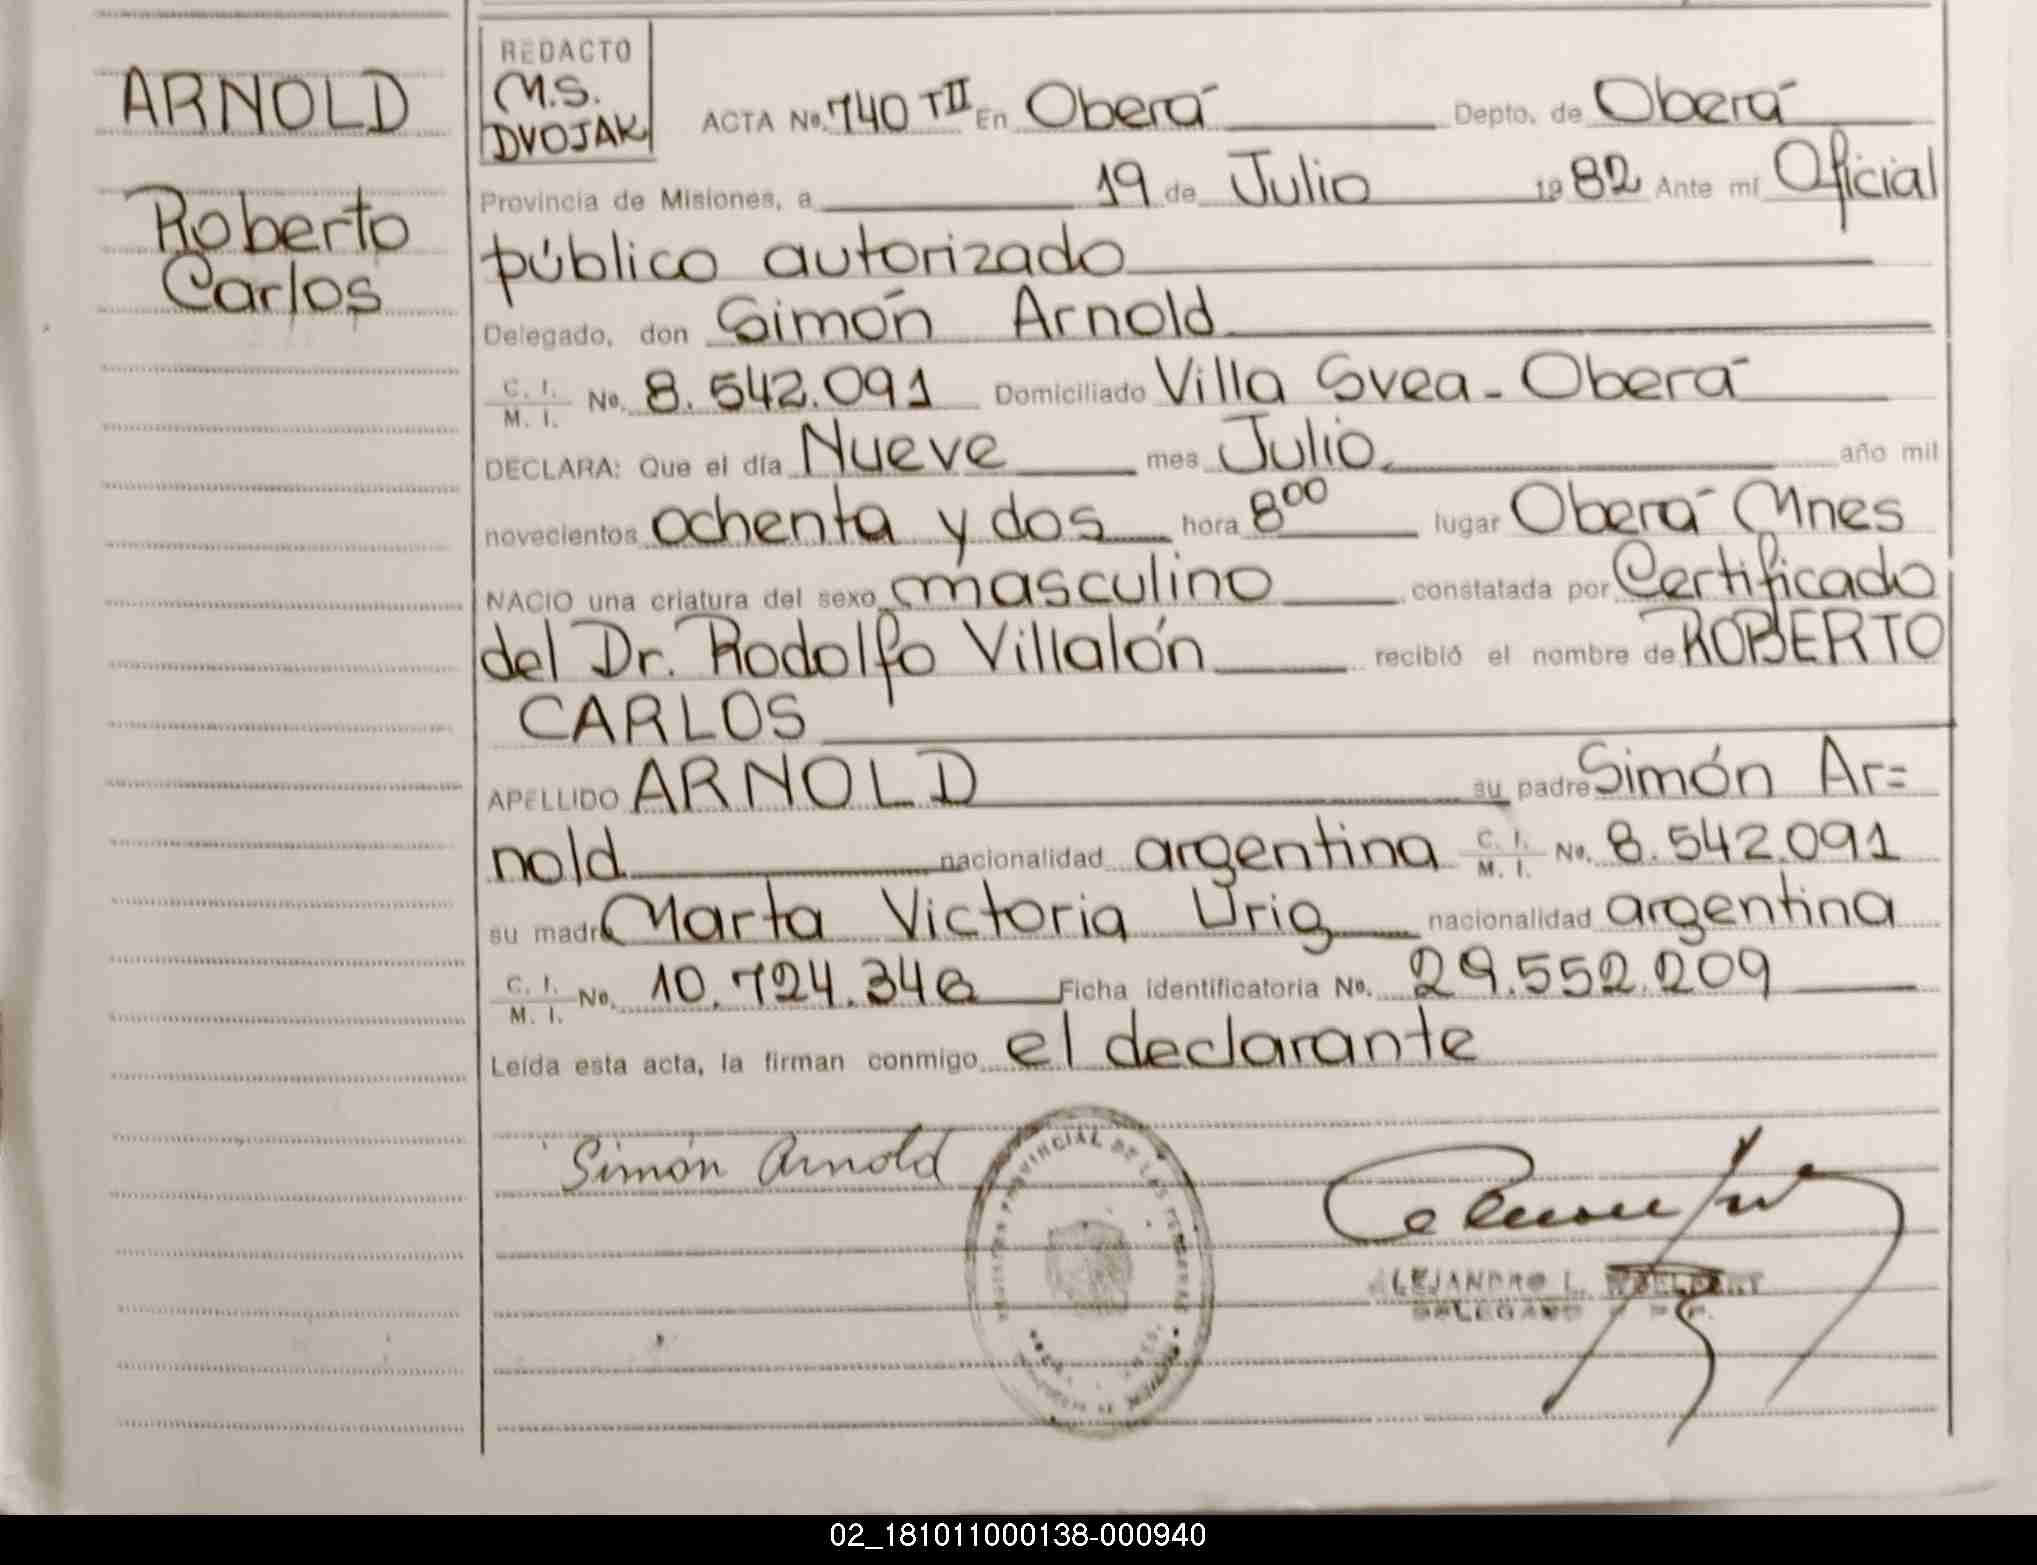 ARNOLD
Roberto
Carlos
REDACTO
M.S.
DVOJAK
ACTA No. 740 TII En Oberá Depto. de Oberá
Provincia de Misiones, a 19 de Julio 1982 Ante mí Oficial
público autorizado
Delegado, don Simón Arnold
C. I. / M. I. No. 8.542.091 Domiciliado Villa Svea - Oberá
DECLARA: Que el día Nueve mes Julio año mil
novecientos ochenta y dos hora 8 00 lugar Oberá Mnes
NACIO una criatura del sexo masculino constatada por Certificado
del Dr. Rodolfo Villalón recibió el nombre de ROBERTO
CARLOS
APELLIDO ARNOLD su padre Simón Ar=
nold nacionalidad argentina C. I. / M. I. No. 8.542.091
su madre Marta Victoria Urig nacionalidad argentina
C. I. / M. I. No. Ficha identificatoria No. 29.552.209
Leída esta acta, la firman conmigo el declarante
Simón Arnold
PROVINCIAL DE LAS PERSONAS
ALEJANDRO L.
DELEGADO
02_181011000138-000940